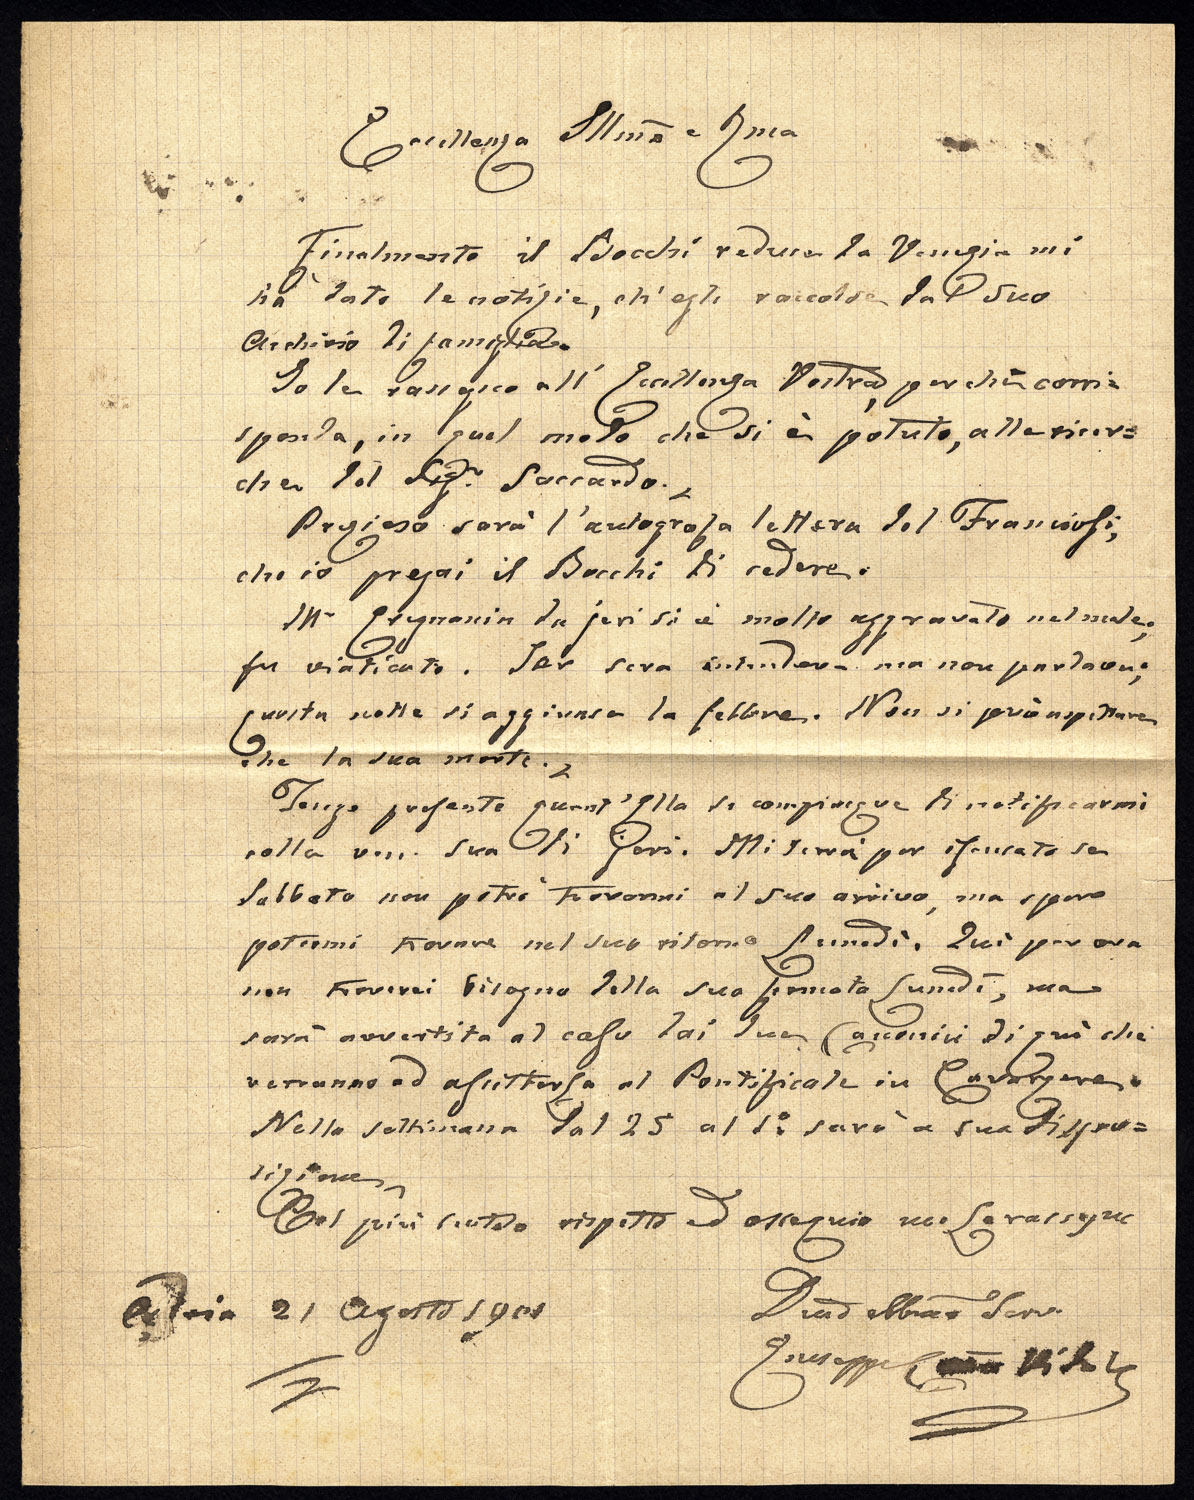 Eccellenza Illma e Rma
Finalmente il Bocchi reduce da Venezia mi
ha dato le notizie, ch'egli raccolse dal suo
Archivio di famiglia.
Io le rassegno all'Eccellenza Vostra, perchè corri=
sponda, in quel modo che si è potuto, alle ricer=
che del Sigr. Saccardo.
Prezioso sarà l'autografa lettera del Franciosi,
che io pregai il Bocchi di cedere.
Mr da jeri si è molto aggravato nel male;
fu viaticato. Ier sera intendeva ma non parlava;
questa notte si aggiunse la febbre. Non si può aspettare
che la sua morte.
Tengo presente quant'Ella si compiacque di notificarmi
colla ven. sua di jeri. Mi terrà per iscusato se
Sabbato non potrò trovarmi al suo arrivo, ma spero
potermi trovare nel suo ritorno Lunedì. Qui per ora
non troverei bisogno della sua fermata Lunedì, ma
sarà avvertita al caso dai due Canonici di quì che
verranno ad assisterla al Pontificale in Cavarzere.
Nella settimana dal 25 al 1º sarò a sua dispo=
sizione.
Col più sentito rispetto ed ossequio me Le rassegno
Adria 21 Agosto 1901
Dmo obbmo Serv.
Giuseppe